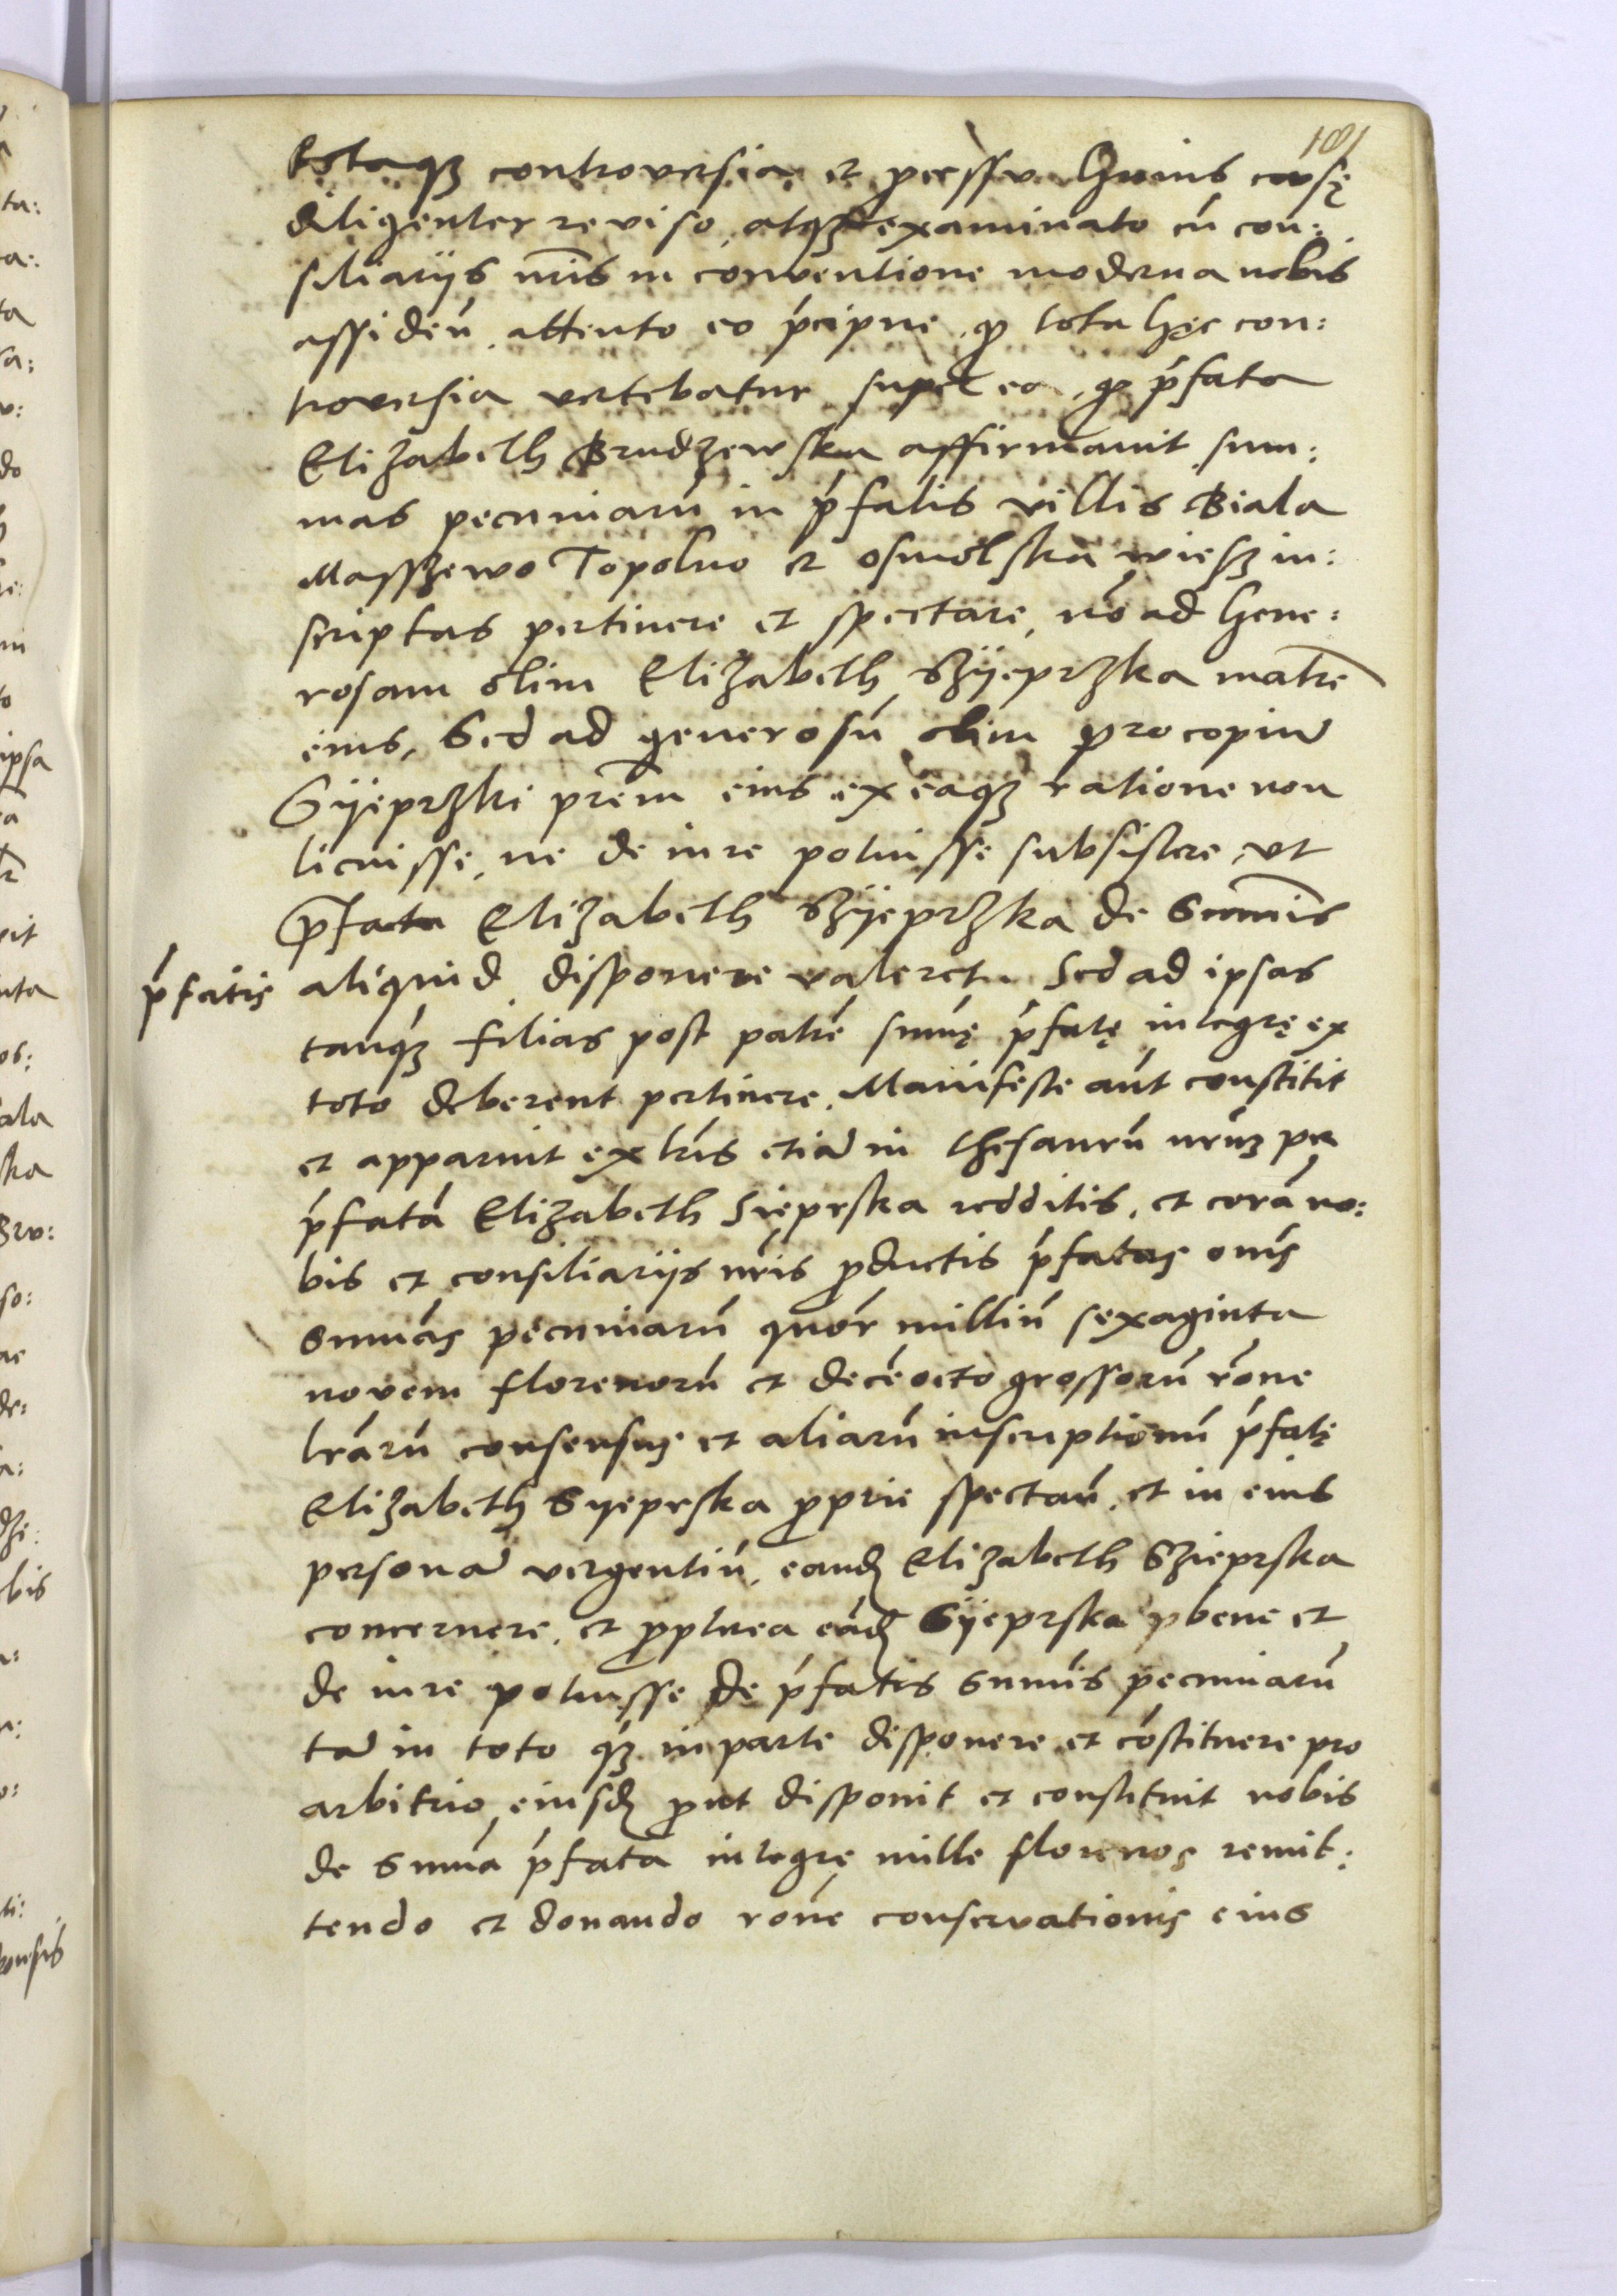 101
totaqȝ controversia et pcessu huius causę
diligenter reviso, atqȝ examinato cū con:
siliarijs nr̄is in conventione moderna nobis
assideń. attento eo p̄cipue, qp tota hęc con:
troversia vertebatur super eo, qp p̄fata
Elizabeth Brudzewska affirmavit sum:
mas pecuniarū in p̄fatis villis Biala
Masszewo Topolno et osmolska wiesz in:
scriptas pertinere et spectare, nō ad Gene:
rosam olim Elizabeth Szÿeprzka matrē
eius, Sed ad generosū olim procopiū
Sÿeprzki pr̄em eius exeaqȝ ratione non
licuisse, ne de iure potuisse subsistere, vt
p̄fata Elizabeth Szÿeprzka de Sum̄is
p̄fatis aliquid disponere valeret. Sed ad ipsas
tanqȝ filias post patrē sum̄ę p̄fatę integrę ex
toto deberent pertinere. Manifeste aūt constitit
et apparuit ex lr̄is etiā in thesaurū nr̄ūm per
p̄fatā Elizabeth Sieprska redditis, et corā no:
bis et consiliarijs nr̄is pductis p̄fatas om̄s
Sum̄as pecuniarū quōr milliū sexaginta
novem florenorū et decē octo grossorū rōne
lr̄arū consensus et aliarū inscriptionū p̄fatę
Elizabeth Syeprska pprie spectań, et in eius
personā vergentiū, eandȩ Elizabeth Szieprska
concernere, et ppterea eādȩ Sÿeprska pbene et
de iure potuisse de p̄fatis Sum̄is pecuniarū
tā in toto qȝ in parte disponere et cōstituere pro
arbitrio eiusdȩ put disponit et constituit nobis
de Sum̄a p̄fata integrę mille florenos remit:
tendo et donando rōne conservationis eius